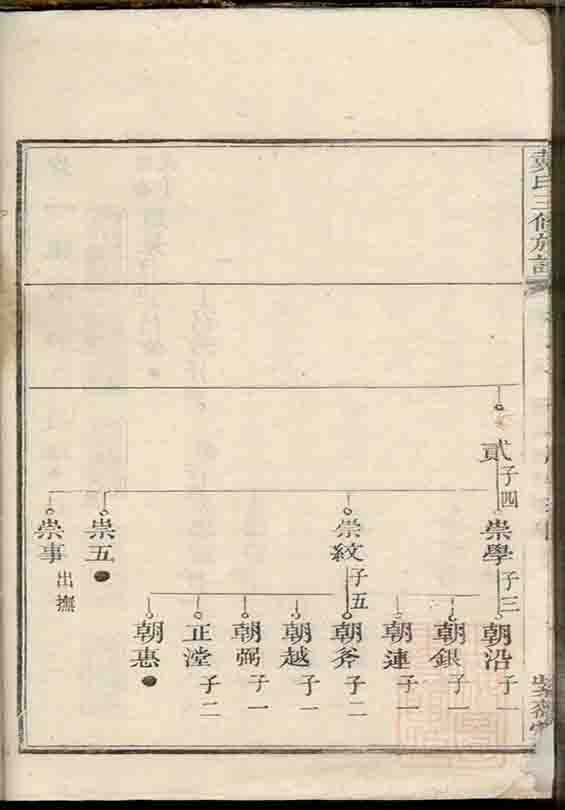 氏三修族譜
貳 子四
崇學 子三
崇紋 子五
崇五
崇事 出撫
朝沿 子一
朝銀 子一
朝連 子一
朝斧 子二
朝越 子一
朝弼 子一
正瀅 子二
朝惠